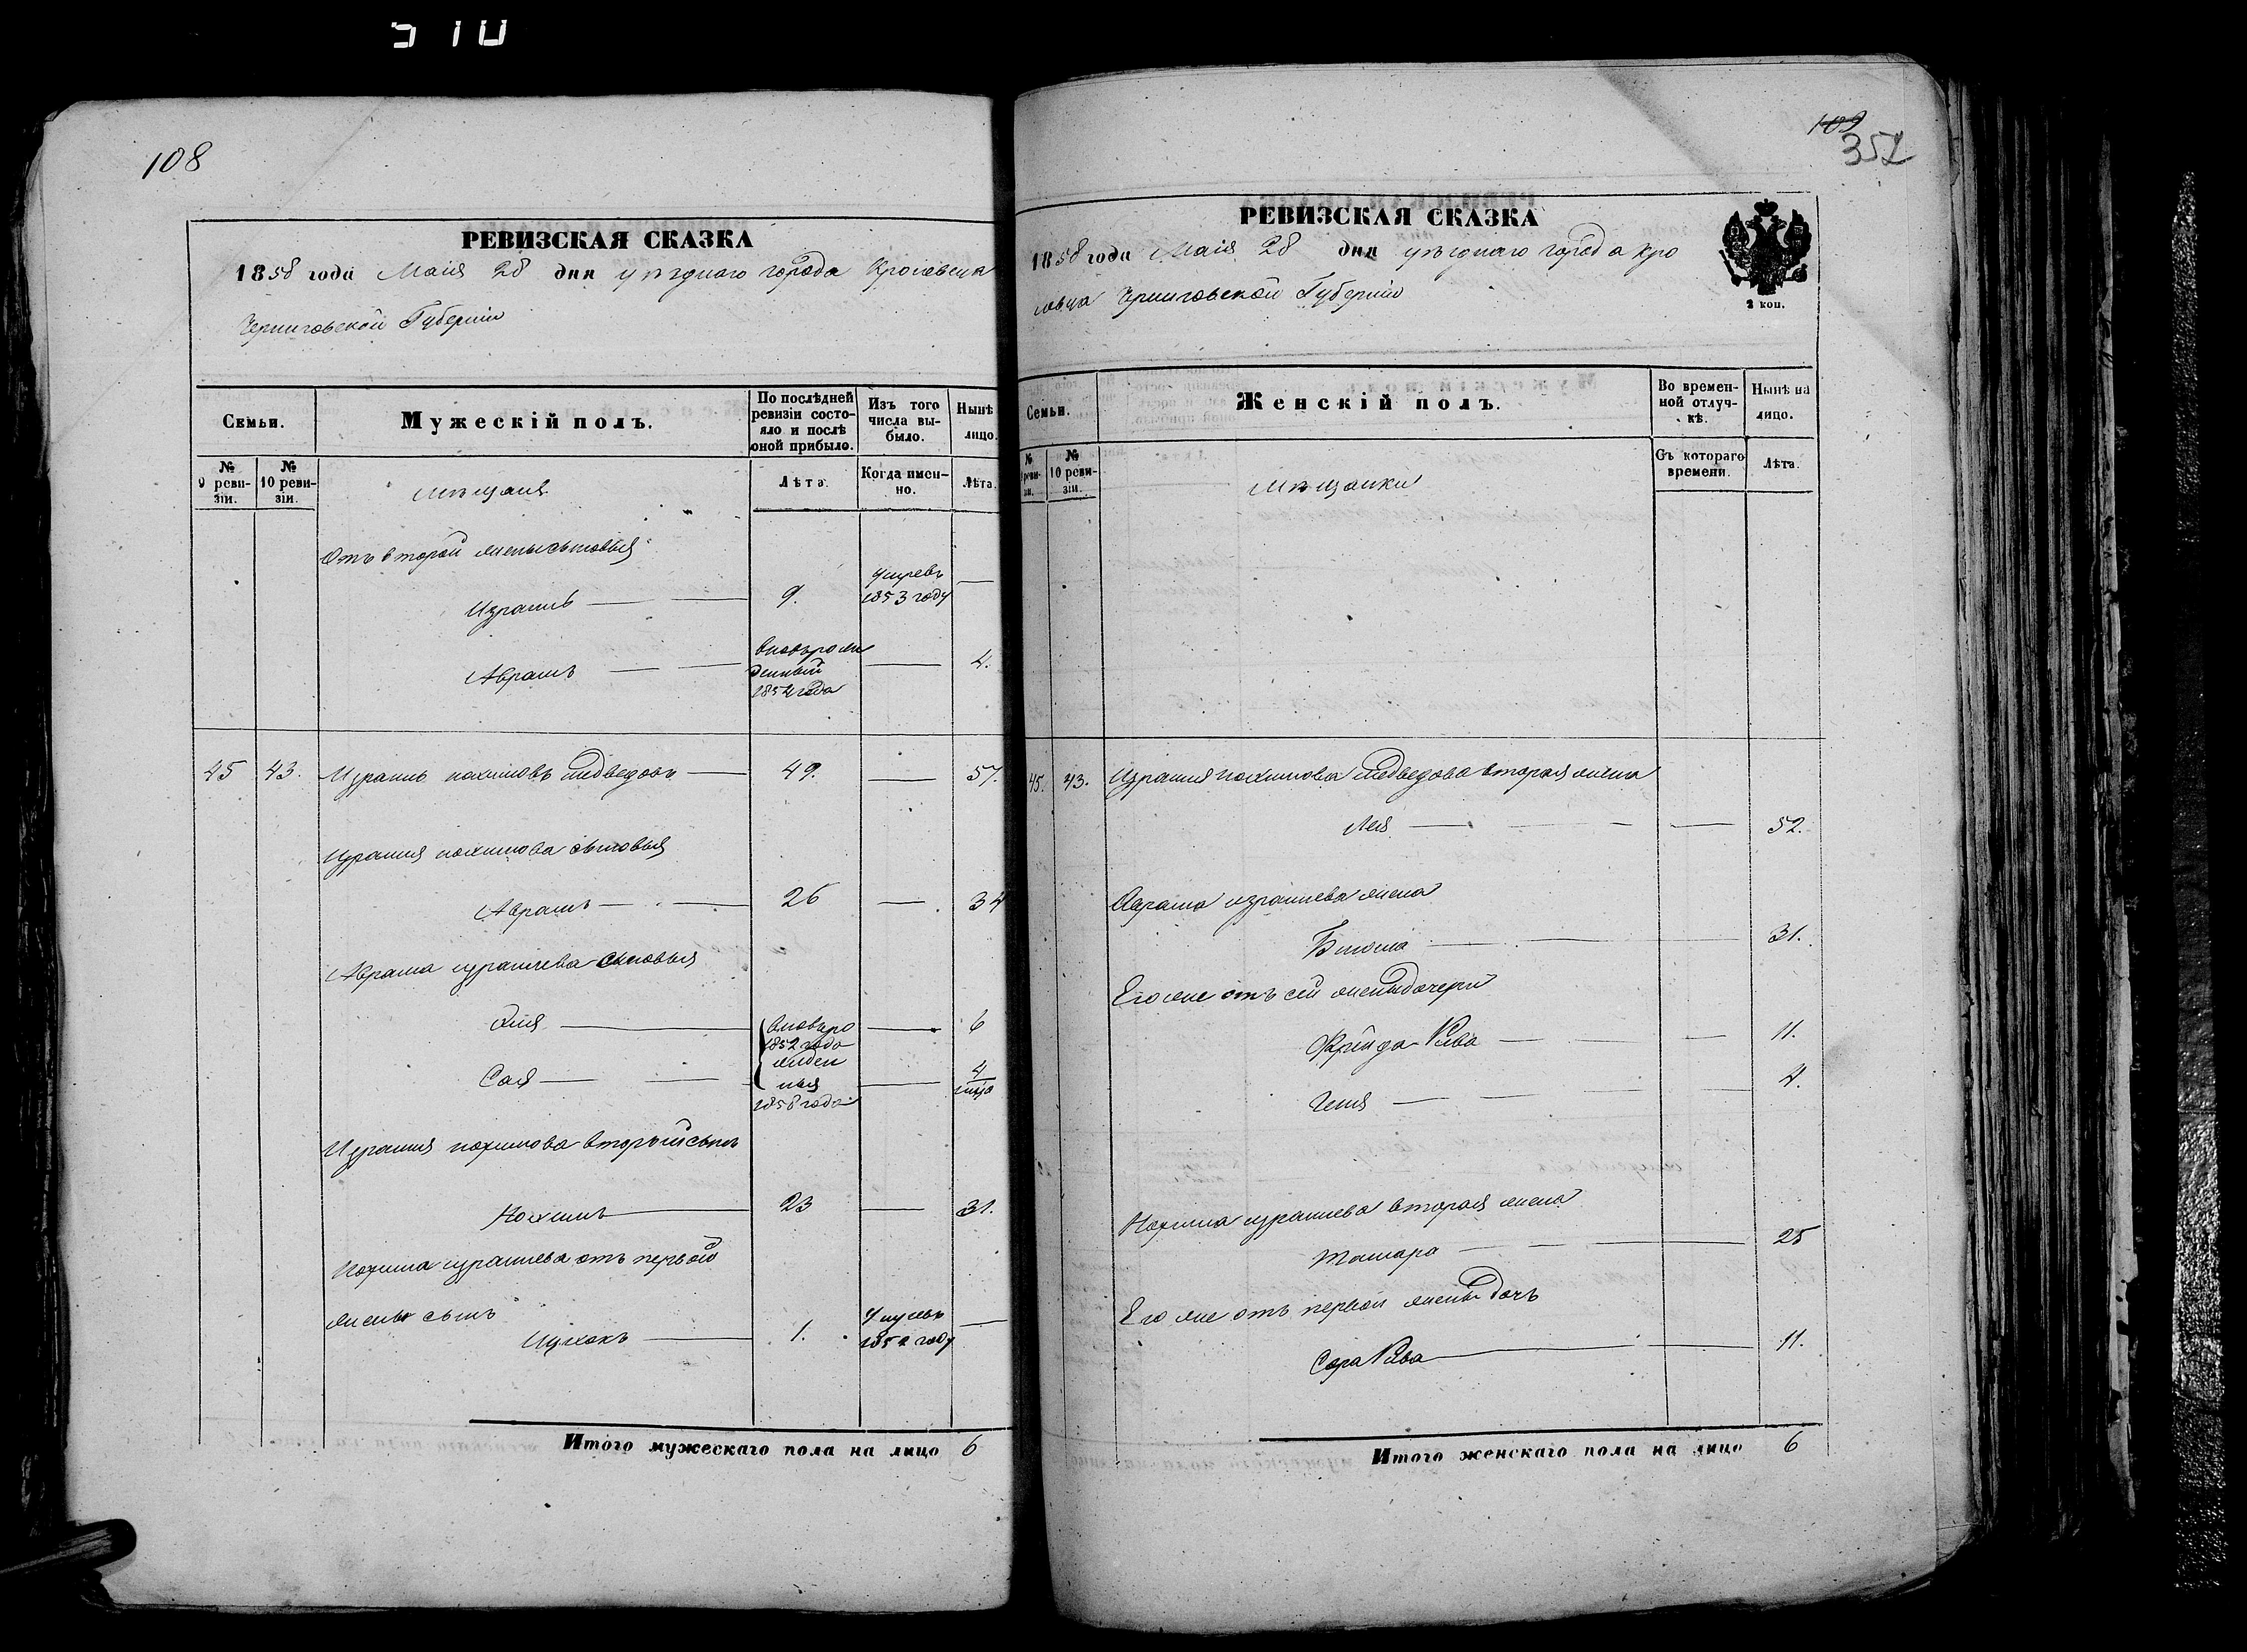 510
108
РЕВИЗСКАЯ СКАЗКА
1858 года Маія 28 дня уѣзднаго города Кролевца
Черниговской Губерніи
Семьи.
Мужескій полъ.
По послѣдней ревизіи состояло и послѣ оной прибыло.
Изъ того числа выбыло.
Нынѣ лицо.
№ 9 ревизіи.
№ 10 ревизіи.
Мѣщане
Лѣта.
Когда именно.
Лѣта.
Отъ второй жены сыновья
Израиль 9. Умре въ 1853 году
Абрамъ вновьрожденный 1854 года 4.
45 43. Израиль нохимовъ медведовъ 49. 57.
Израиля нохимова сыновья
Абрамъ 26 34
Абрама израилева сыновья
вновьро 6
1852 года
жден
Сая ныя 4
1858 года
Израиля нохимова вторый сынъ
Нохимъ 23 31.
Нохима израилева отъ первой
жены сынъ
Ицхокъ 1. 1852 году
Итого мужескаго пола на лицо 6
109
352
РЕВИЗСКАЯ СКАЗКА
1858 года Маія 28 дня уѣзднаго города Кро
левца Черниговской Губерніи
2 коп.
Семьи.
Женскій полъ.
Во временной отлучкѣ.
Нынѣ на лицо.
№ 9 ревизіи.
№ 10 ревизіи.
Мѣщанки
Съ котораго времени.
Лѣта.
45. 43. Израиля нохимова медведова вторая жена
Лея 52.
Абрама израилева жена
31.
Его же отъ сей жены дочери
Фрейда Рива 11.
Геня 4.
Нохима израилева вторая жена
Тамара 25
Его же отъ первой жены дочь
Сора Рива 11.
Итого женскаго пола на лицо 6